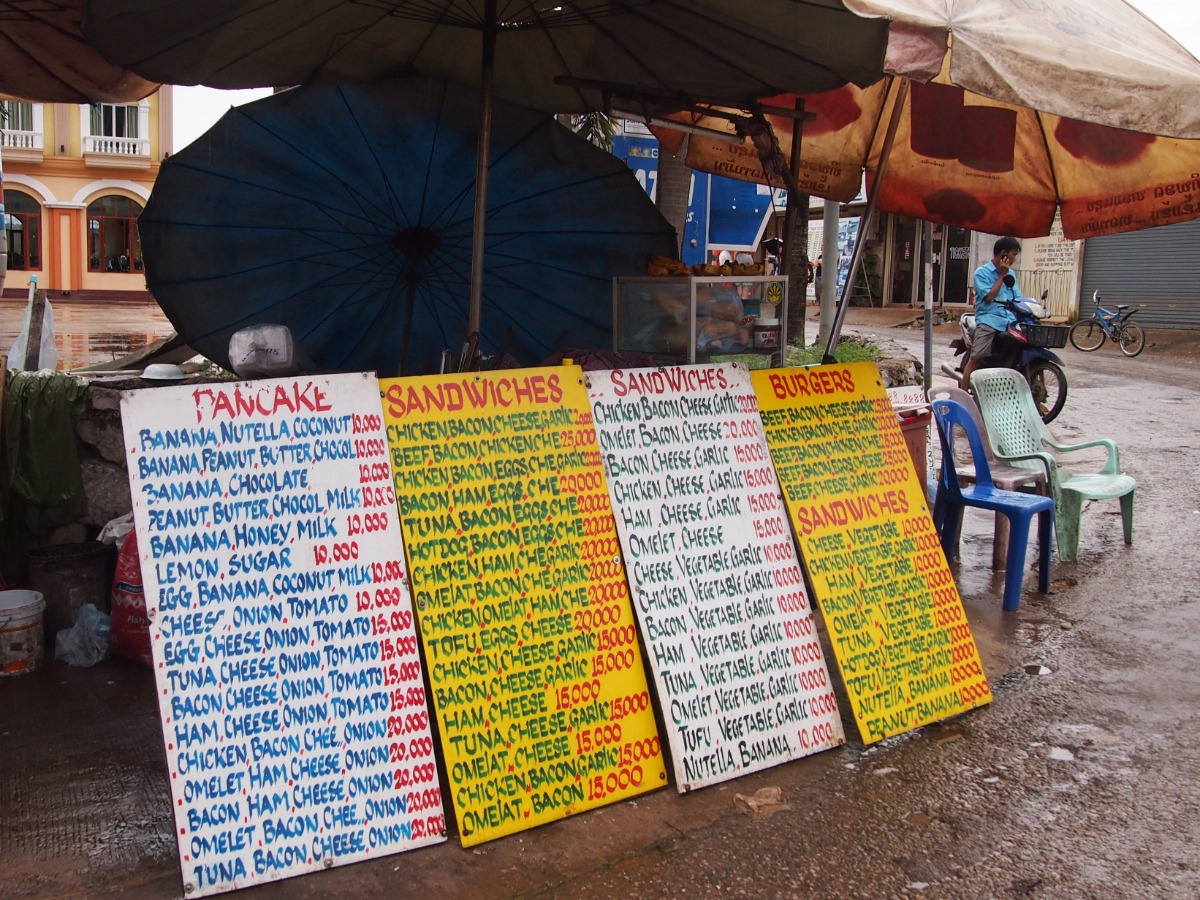 PANCAKE
BANANA, NUTELLA, COCONUT 10,000
BANANA, PEANUT, BUTTER, CHOCOL 10,000
BANANA, CHOCOLATE 10,000
PEANUT, BUTTER, CHOCOL, MILK 10,000
BANANA, HONEY, MILK 10,000
LEMON, SUGAR 10,000
EGG, BANANA, COCONUT MILK 10,000
CHEESE, ONION, TOMATO 10,000
EGG, CHEESE, ONION, TOMATO 15,000
TUNA, CHEESE, ONION, TOMATO 15,000
BACON, CHEESE, ONION, TOMATO 15,000
HAM, CHEESE, ONION, TOMATO 15,000
CHICKEN, BACON, CHEE, ONION 20,000
OMELET, HAM, CHEESE, ONION 20,000
BACON, HAM, CHEESE, ONION 20,000
OMELET, BACON, CHEE, ONION 20,000
TUNA, BACON, CHEESE, ONION 20,000
SANDWICHES
CHICKEN, BACON, CHEESE, GARLIC
BEEF, BACON, CHICKEN, CHE 25,000
CHICKEN, BACON, EGGS, CHE, GARLIC
BACON, HAM, EGGS, CHE 20,000
TUNA, BACON, EGGS, CHE 20,000
HOTDOG, BACON, EGGS, CHE 20,000
CHICKEN, HAM, CHE, GARLIC 20,000
OMELAT, BACON, CHE, GARLIC 20,000
CHICKEN, OMELAT, HAM, CHE 20,000
TOFU, EGGS, CHEESE 20,000
CHICKEN, CHEESE, GARLIC 15,000
BACON, CHEESE, GARLIC 15,000
HAM, CHEESE 15,000
TUNA, CHEESE, GARLIC 15,000
OMELAT, CHEESE 15,000
CHICKEN, BACON, GARLIC 15,000
OMELAT, BACON 15,000
SANDWICHES..
CHICKEN, BACON, CHEESE, GARLIC 20,000
OMELET, BACON, CHEESE 20,000
BACON, CHEESE, GARLIC 15,000
CHICKEN, CHEESE, GARLIC 15,000
HAM, CHEESE, GARLIC 15,000
OMELET, CHEESE 15,000
CHEESE, VEGETABLE, GARLIC 10,000
CHICKEN, VEGETABLE, GARLIC 10,000
BACON, VEGETABLE, GARLIC 10,000
HAM, VEGETABLE, GARLIC 10,000
TUNA, VEGETABLE, GARLIC 10,000
OMELET, VEGETABLE, GARLIC 10,000
TUFU, VEGETABLE, GARLIC 10,000
NUTELLA, BANANA, 10,000
BURGERS
BEEF, BACON, CHEESE, GARLIC
CHICKEN, BACON, CHEESE
BEEF, BACON, EGGS, CHEESE
BEEF, EGGS, CHEESE, GARLIC
BEEF, CHEESE, GARLIC
SANDWICHES
CHEESE, VEGETABLE 10,000
CHICKEN, VEGETABLE 10,000
HAM, VEGETABLE, GARLIC 10,000
BACON, VEGETABLE, GARLIC 10,000
OMELAT, VEGETABLE 10,000
TUNA, VEGETABLE 10,000
HOTDOG, VEGETABLE, GARLIC 10,000
TOFU, VEGETABLE, GARLIC 10,000
NUTELLA, BANANA 10,000
PEANUT, BANANA 10,000